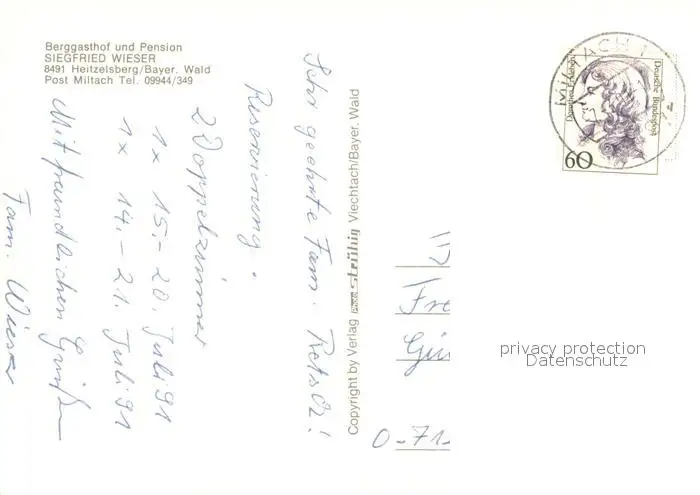 Berggasthof und Pension
SIEGFRIED WIESER
8491 Heitzelsberg/Bayer. Wald
Post Miltach Tel. 09944/349
Sehr geehrte Fam.
Reservierung.
2 Doppelzimmer
1 x 15.- 20. Juli 91
1 x 14.- 21. Juli 91
Mit freundlichen Grüßen
Fam. Wieser
Copyright by Verlag Viechtach/Bayer. Wald
Deutsche Bundespost
Dorothea Erxleben
60
MILTACH
Fre
Gün
O-71
privacy protection
Datenschutz